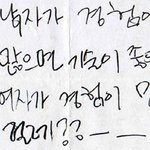 남자가 경험이
많으면 기분이 좋
여자가 경험이
?? ㅡㅡ